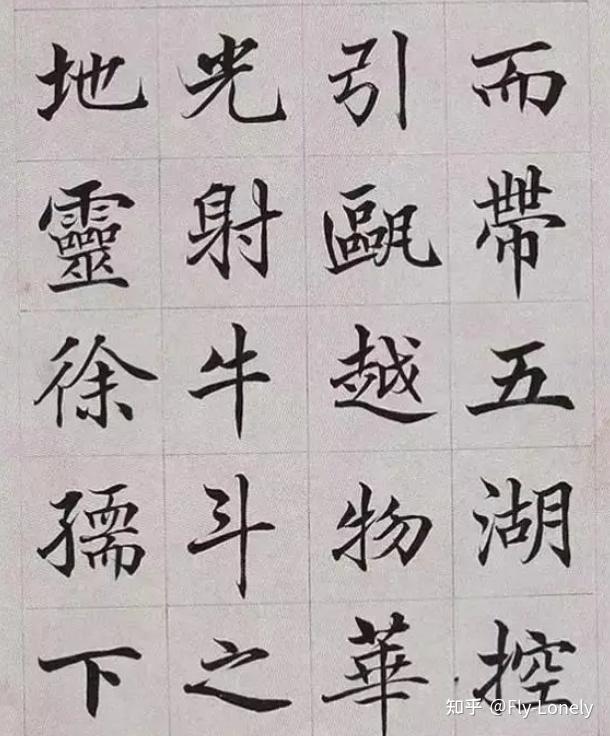 而帶五湖控
引甌越物華
光射牛斗之
地靈徐孺下
知乎 @Fly-Lonely